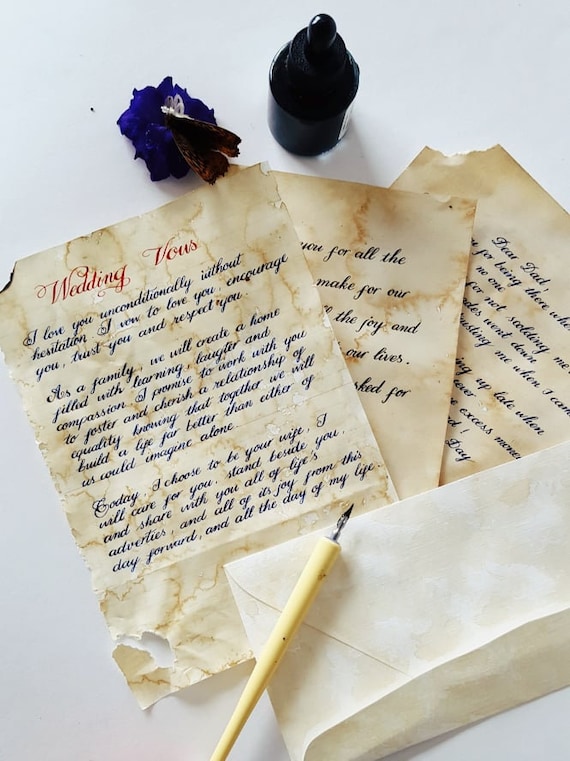 Wedding Vows
I love you unconditionally without
hesitation. I vow to love you, encourage
you, trust you and respect you.
As a family, we will create a home
filled with learning, laughter and
compassion. I promise to work with you
to foster and cherish a relationship of
equality knowing that together we will
build a life far better than either of
us could imagine alone.
Today, I choose to be your wife. I
will care for you, stand beside you,
and share with you all of life's
adverties, and all of its joy from this
day forward, and all the day of my life.
you for all the
make for our
the joy and
our lives.
for
Dear Dad!
for being there when
no one
for not scolding me
went down
me when I cam
up late when
excess mone
Day